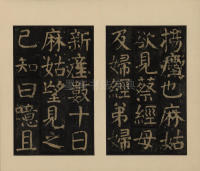 搔癢也麻姑
欲見蔡經母
及婦經弟婦
新產數十日
麻姑望見之
已知曰噫且